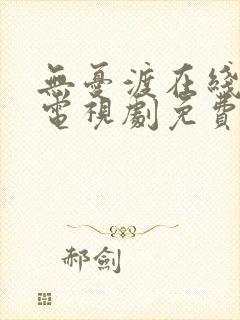 無憂渡在綫
電視劇免費
郝劍